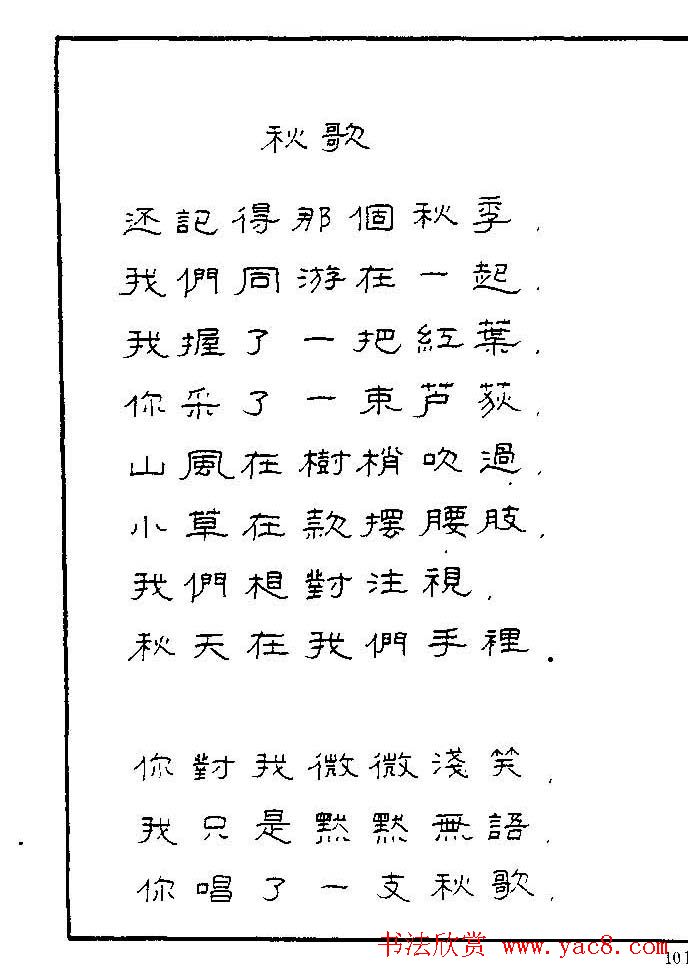 秋歌
还記得那個秋季，
我們同游在一起，
我握了一把紅葉，
你采了一束芦荻，
山風在樹梢吹過，
小草在款擺腰肢，
我們相對注視，
秋天在我們手裡．
你對我微微淺笑，
我只是黙黙無語，
你唱了一支秋歌，
书法欣赏 www.yac8.com
101